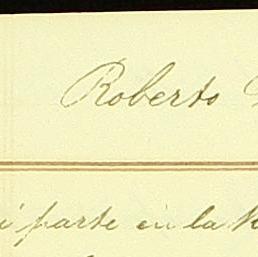 Roberto
parte en la